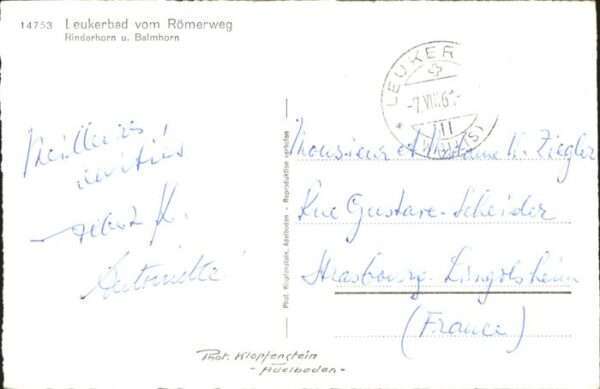 14753 Leukerbad vom Römerweg
Rinderhorn u. Balmhorn
LEUKER
-7.VII.6
Meilleures
amitiés
Antoinette
Monsieur et Madame K. Ziegler
Rue Gustave-Scheider
Strasbourg-Lingolsheim
(France)
Phot. Klopfenstein, Adelboden - Reproduktion verboten
Phot. Klopfenstein
- Adelboden -